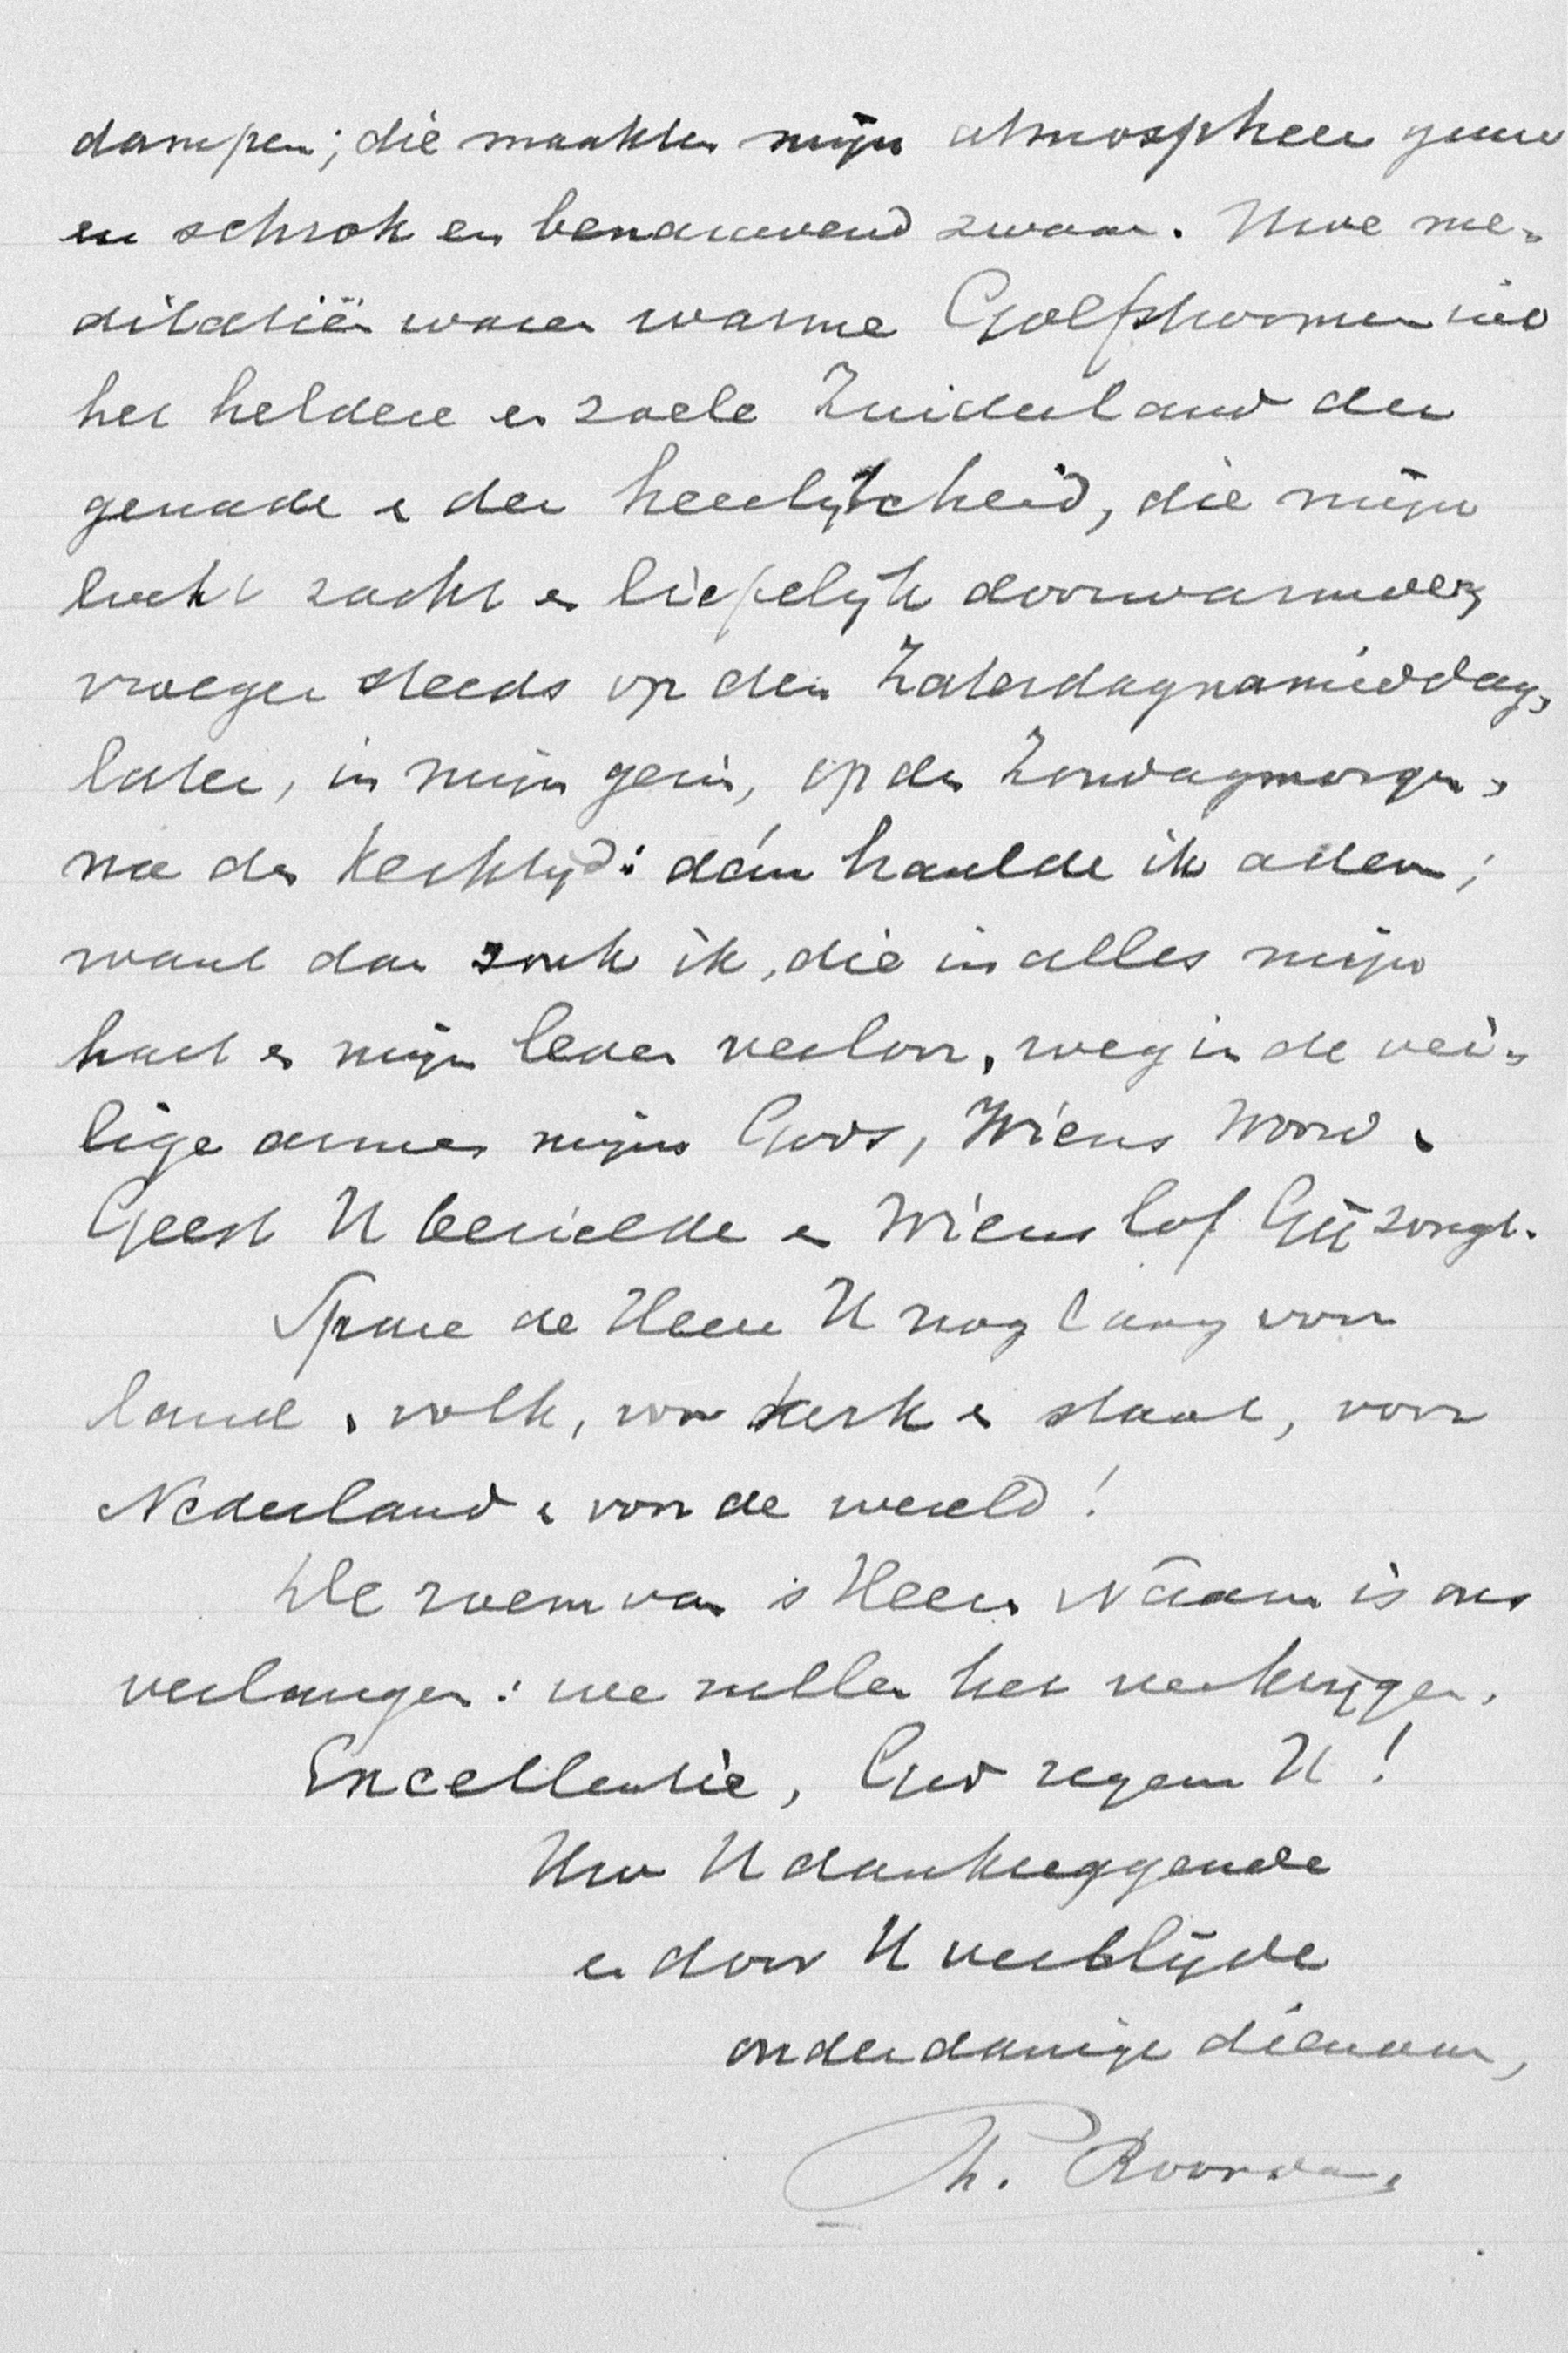 dampen; die maakten mijn atmospheer guur
en schrok en benauwend zwaar. Uwe me-
ditatiën waren warme Golfstroomen uit
het heldere en zoele Zuiderland der
genade en der heerlijkheid, die mijn
lucht zacht en liefelijk doorwarmden,
vroeger steeds op den Zaterdagnamiddag,
later, in mijn gezin, op den Zondagmorgen,
na de kerktijd: dán haalde ik adem;
want dan zonk ik, die in alles mijn
hart en mijn leven verloor, weg in de vei-
lige armen mijns Gods, Wiens Woord en
Geest U bezielde en Wiens lof Gij zongt.
Spare de Heere U nog lang voor
land en volk, voor kerk en staat, voor
Nederland en voor de wereld!
De roem van 's Heeren Náam is ons
verlangen: we zullen het verkrijgen.
Excellentie, God zegene U!
Uw U dankzeggende
en door U verblijde
onderdanige dienaar,
Th. Roorda.